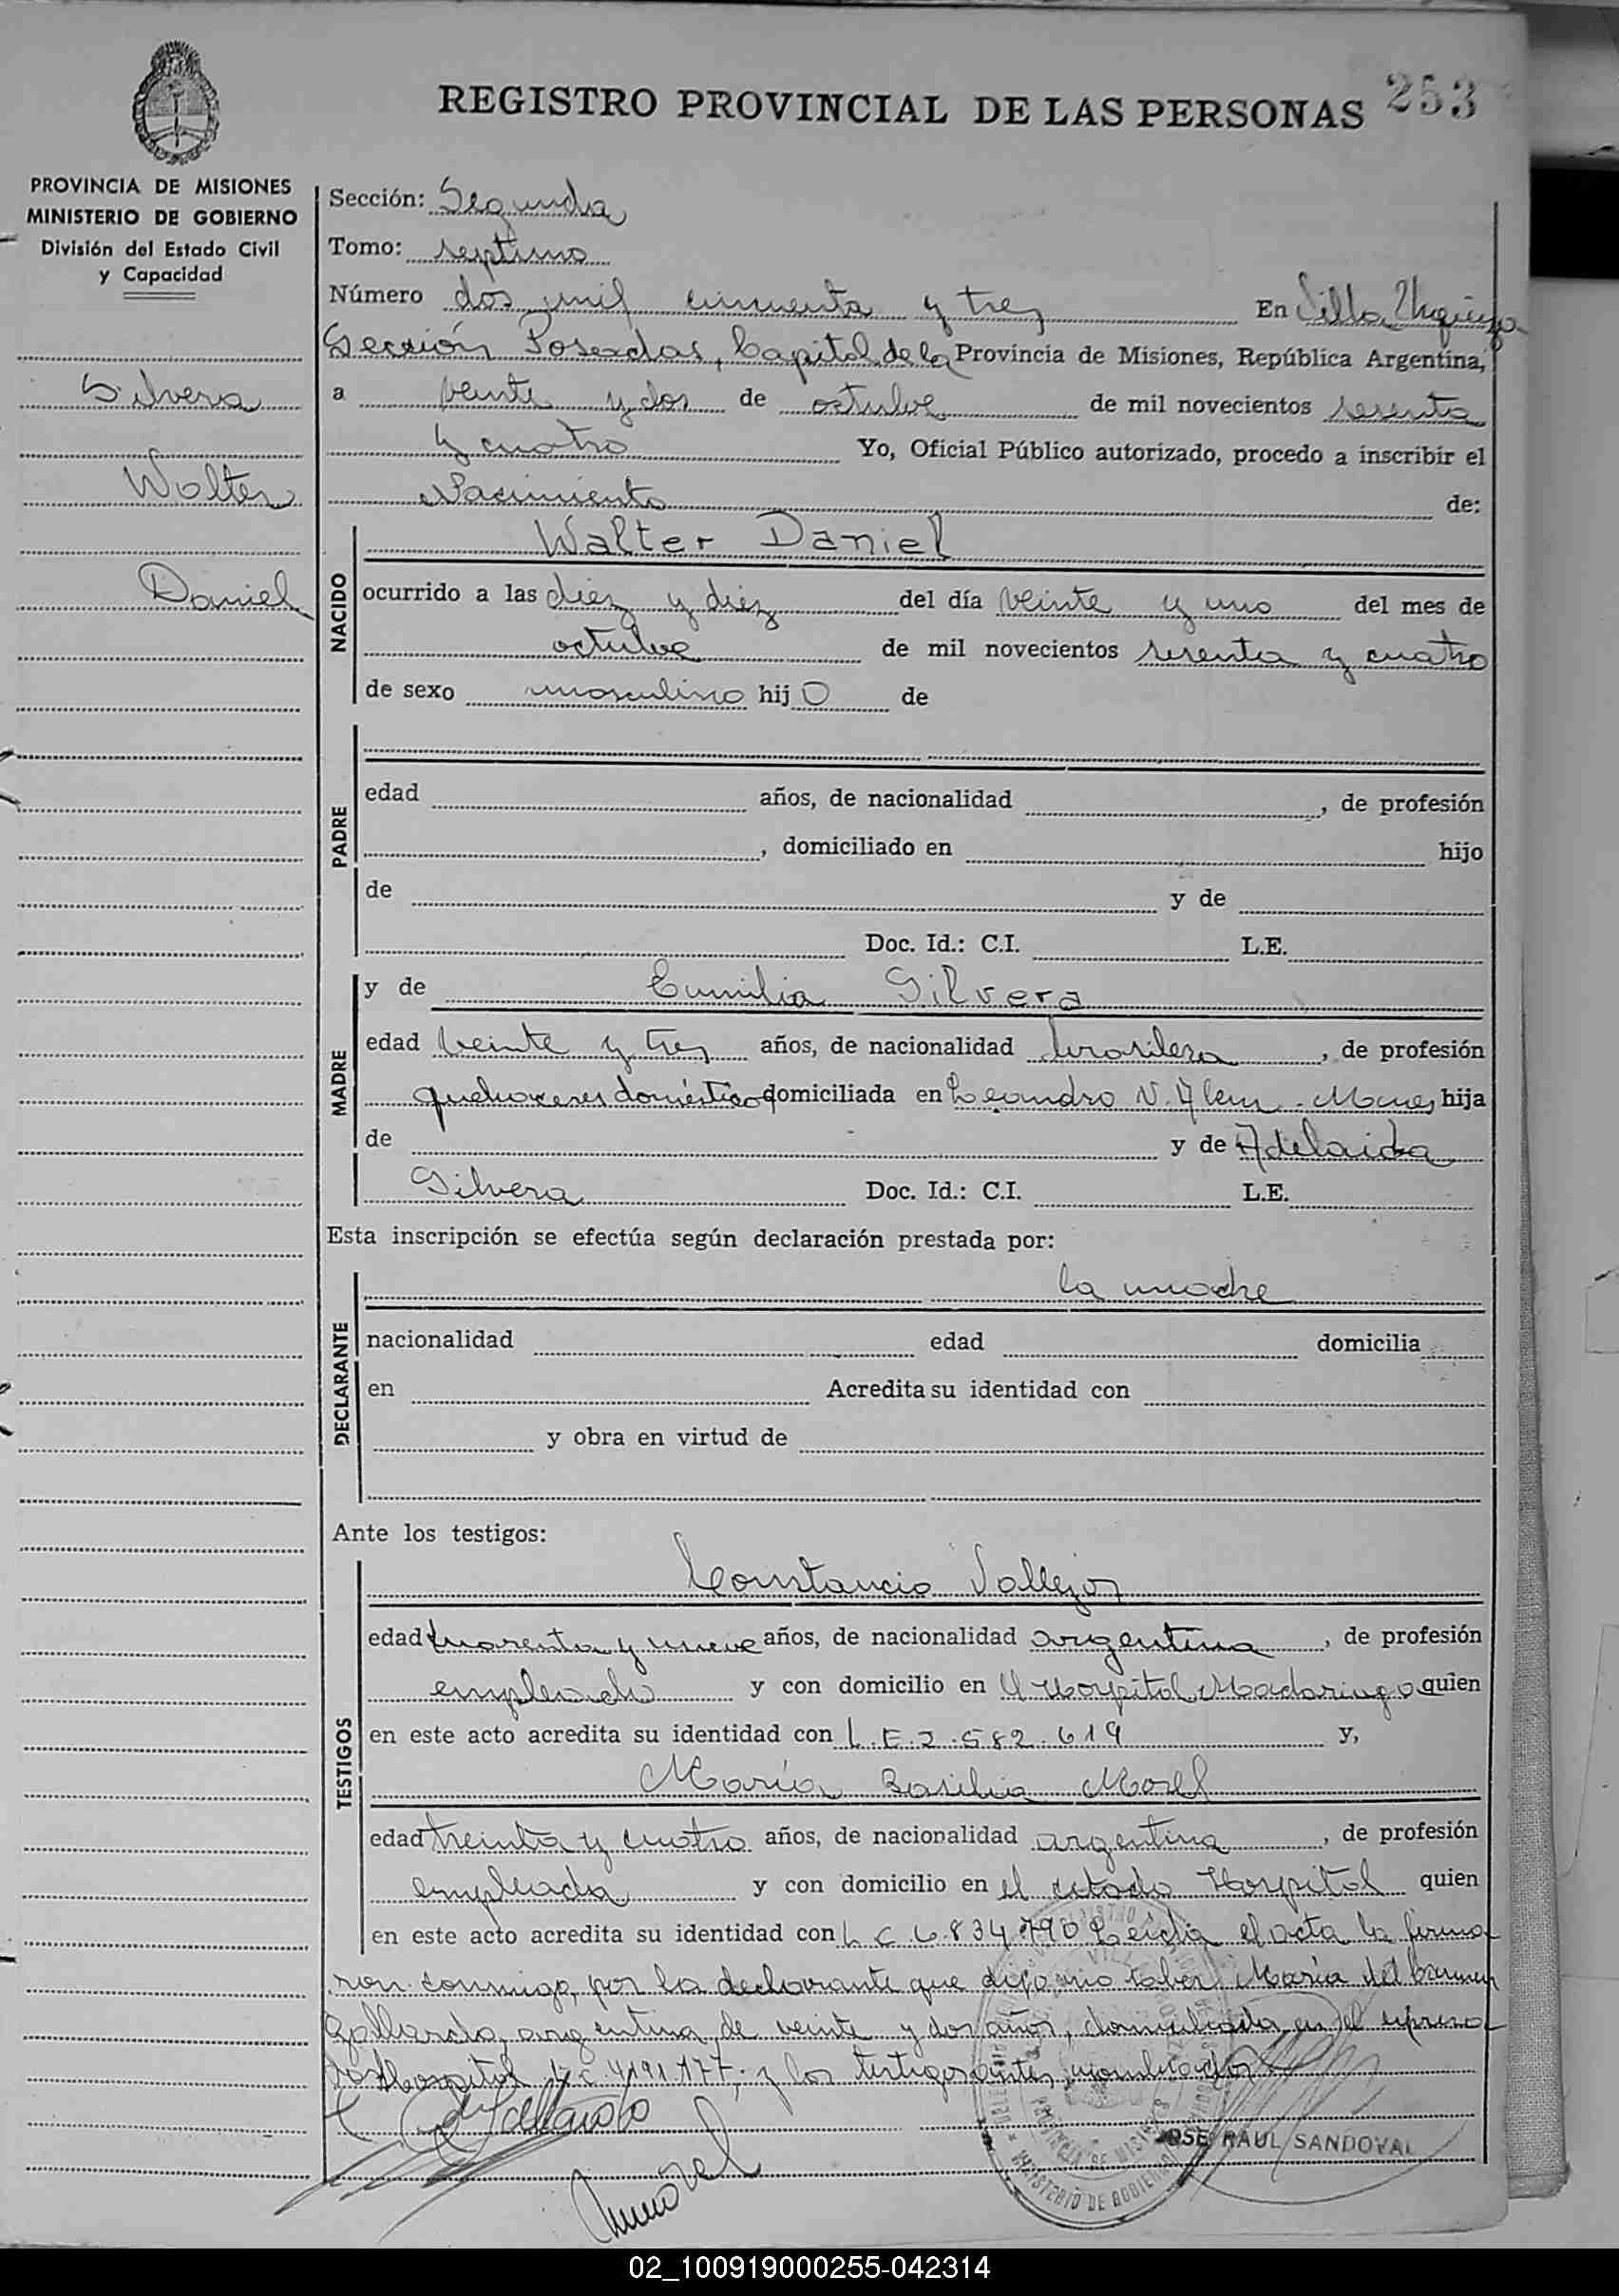 REGISTRO PROVINCIAL DE LAS PERSONAS 253
PROVINCIA DE MISIONES
MINISTERIO DE GOBIERNO
División del Estado Civil
y Capacidad
Silvera
Walter
Daniel
Sección: Segunda
Tomo: septimo
Número dos mil cincuenta y tres En Villa Urquiza
Sección Posadas, Capital de la Provincia de Misiones, República Argentina,
a veinte y dos de octubre de mil novecientos sesenta
y cuatro Yo, Oficial Público autorizado, procedo a inscribir el
Nacimiento de:
NACIDO
Walter Daniel
ocurrido a las diez y diez del día veinte y uno del mes de
octubre de mil novecientos sesenta y cuatro
de sexo masculino hijo de
PADRE
edad años, de nacionalidad , de profesión
, domiciliado en hijo
de y de
Doc. Id.: C.I. L.E.
MADRE
y de Emilia Silvera
edad veinte y tres años, de nacionalidad brasilera, de profesión
quehaceres domésticos domiciliada en Leandro N. Alem - Mnes hija
de y de Adelaida
Silvera Doc. Id.: C.I. L.E.
Esta inscripción se efectúa según declaración prestada por:
DECLARANTE
la madre
nacionalidad edad domicilia
en Acredita su identidad con
y obra en virtud de
Ante los testigos:
TESTIGOS
Constancio Vallejos
edad cuarenta y nueve años, de nacionalidad argentina, de profesión
empleado y con domicilio en Hospital Madariaga quien
en este acto acredita su identidad con L.E. 2.582.619 y,
María Basilia Morel
edad treinta y cuatro años, de nacionalidad argentina, de profesión
empleada y con domicilio en el citado Hospital quien
en este acto acredita su identidad con L C 6.834.790 Leida el acta la firma-
ron conmigo, por la declarante que dijo no saber María del Carmen
Gallardo, argentina de veinte y dos años, domiciliada en el expresa-
do Hospital L C 4191177, y los testigos antes nombrados
Gallardo
Morel
JOSE RAUL SANDOVAL
MINISTERIO DE GOBIERNO
PROVINCIA DE MISIONES
02_100919000255-042314